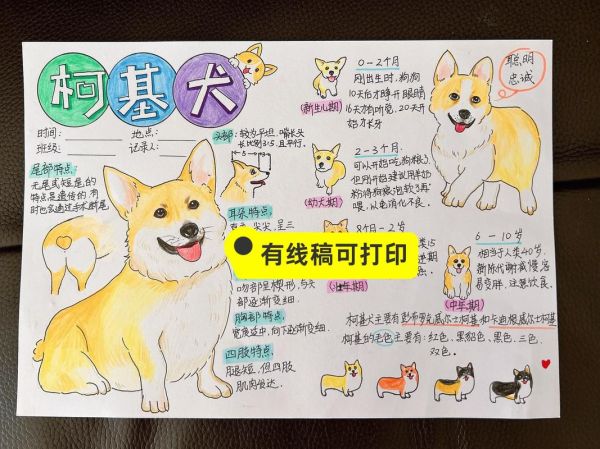 柯基犬
时间：
地点：
班级：
记录人：
尾部特点：
无尾或短尾的
特点是遗传的有
时也会通过手术断尾
头部：较为平坦，嘴长头
长比例3:5，且平行。
3
5
耳朵特点，
直立、尖尖，呈三
吻部呈楔形，与头
部逐渐变细。
胸部特点，
宽度适中，向下逐渐变细。
四肢特点，
腿短，但四肢
肌肉发达。
0-2个月
(新生儿期)
刚出生时，狗狗
10天后才睁开眼睛
16天有听觉，20天开
始力长牙
2-3个月
(幼犬期)
可以开始吃狗粮了
但刚开始建议用羊奶
粉将狗粮泡软了再
喂，以免消化不良。
8个月-2岁
年期)
有线稿可打印
6-10岁
(中年期)
相当于人类40岁，
新陈代谢减慢容
易变胖，注意饮食。
聪明
忠诚
柯基犬主要有彭布罗克威尔士柯基和卡迪根威尔士柯基
柯基的毛色主要有：红色、黑貂色、黑色、三色、
双色。